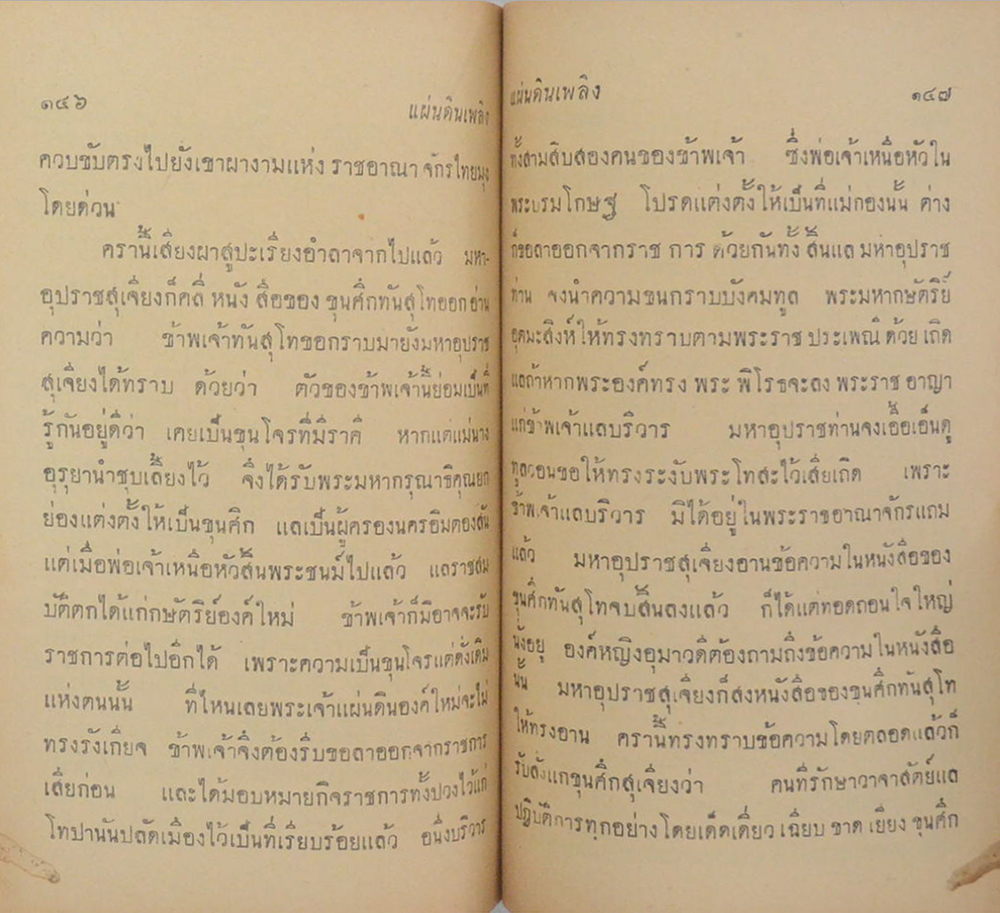 ๑๔๖ แผ่นดินเพลิง
ควบขับตรงไปยังเขาผางามแห่ง ราชอาณา จักรไทยมุง
โดยด่วน
ครานี้เสี่ยงผาสู่ปะเรี่ยงอำลาจากไปแล้ว มหา-
อุปราชสุเจี่ยงก็คลี่ หนัง สือของ ขุนศึกทันสุโทออกอ่าน
ความว่า ข้าพเจ้าทันสุโทขอกราบมายังมหาอุปราช
สุเจี่ยงได้ทราบ ด้วยว่า ตัวของข้าพเจ้านี้ย่อมเป็นที่
รู้กันอยู่ดีว่า เคยเป็นขุนโจรที่มีราคี หากแต่แม่นาง
อุรุยานำชุบเลี้ยงไว้ จึ่งได้รับพระมหากรุณาธิคุณยก
ย่องแต่งตั้งให้เป็นขุนศึก แลเป็นผู้ครองนครอิมตองสัน
แต่เมื่อพ่อเจ้าเหนือหัวสิ้นพระชนม์ไปแล้ว แลราชสม
บัติตกได้แก่กษัตริย์องค์ใหม่ ข้าพเจ้าก็มิอาจจะรับ
ราชการต่อไปอีกได้ เพราะความเป็นขุนโจรแต่ดั่งเดิม
แห่งตนนั้น ที่ไหนเลยพระเจ้าแผ่นดินองค์ใหม่จะไม่
ทรงรังเกียจ ข้าพเจ้าจึ่งต้องรีบขอลาออกจากราชการ
เสียก่อน และได้มอบหมายกิจราชการทั้งปวงไว้แก่
โทปานันปลัดเมืองไว้เป็นที่เรียบร้อยแล้ว อนึ่งบริวาร
แผ่นดินเพลิง ๑๔๗
ทั้งสามสิบสองคนของข้าพเจ้า ซึ่งพ่อเจ้าเหนือหัวใน
พระบรมโกษฐ โปรดแต่งตั้งให้เป็นที่แม่กองนั้น ต่าง
ก็ขอลาออกจากราช การ ด้วยกันทั้ง สิ้นแล มหาอุปราช
ท่าน จงนำความขึ้นกราบบังคมทูล พระมหากษัตริย์
อุตมะสิงห์ ให้ทรงทราบตามพระราช ประเพณี ด้วย เถิด
แลถ้าหากพระองค์ทรง พระ พิโรธจะลง พระราช อาญา
แก่ข้าพเจ้าแลบริวาร มหาอุปราชท่านจงเอื้อเอ็นดู
ทูลวอนขอให้ทรงระงับพระโทสะไว้เสียเถิด เพราะ
ข้าพเจ้าแลบริวาร มิได้อยู่ในพระราชอาณาจักรแถม
แล้ว มหาอุปราชสุเจี่ยงอ่านข้อความในหนังสือของ
ขุนศึกทันสุโทจบสิ้นลงแล้ว ก็ได้แต่ทอดถอนใจใหญ่
นั่งอยู่ องค์หญิงอุมาวดีต้องถามถึงข้อความในหนังสือ
นั้น มหาอุปราชสุเจี่ยงก็ส่งหนังสือของขุนศึกทันสุโท
ให้ทรงอ่าน ครานี้ทรงทราบข้อความโดยตลอดแล้วก็
รับสั่งแก่ขุนศึกสุเจี่ยงว่า คนที่รักษาวาจาสัตย์แล
ปฏิบัติการทุกอย่างโดยเด็ดเดี่ยว เฉียบ ขาด เยี่ยง ขุนศึก